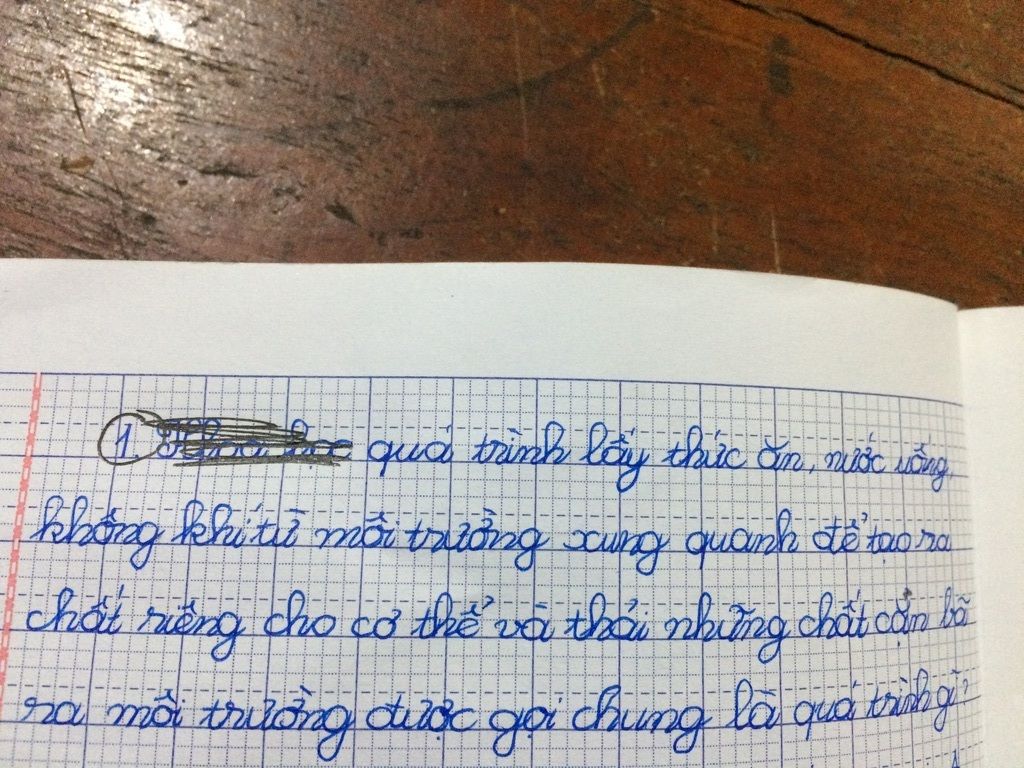 1. quá trình lấy thức ăn, nước uống,
không khí từ môi trường xung quanh để tạo ra
chất riêng cho cơ thể và thải những chất cặn bã
ra môi trường được gọi chung là quá trình gì?